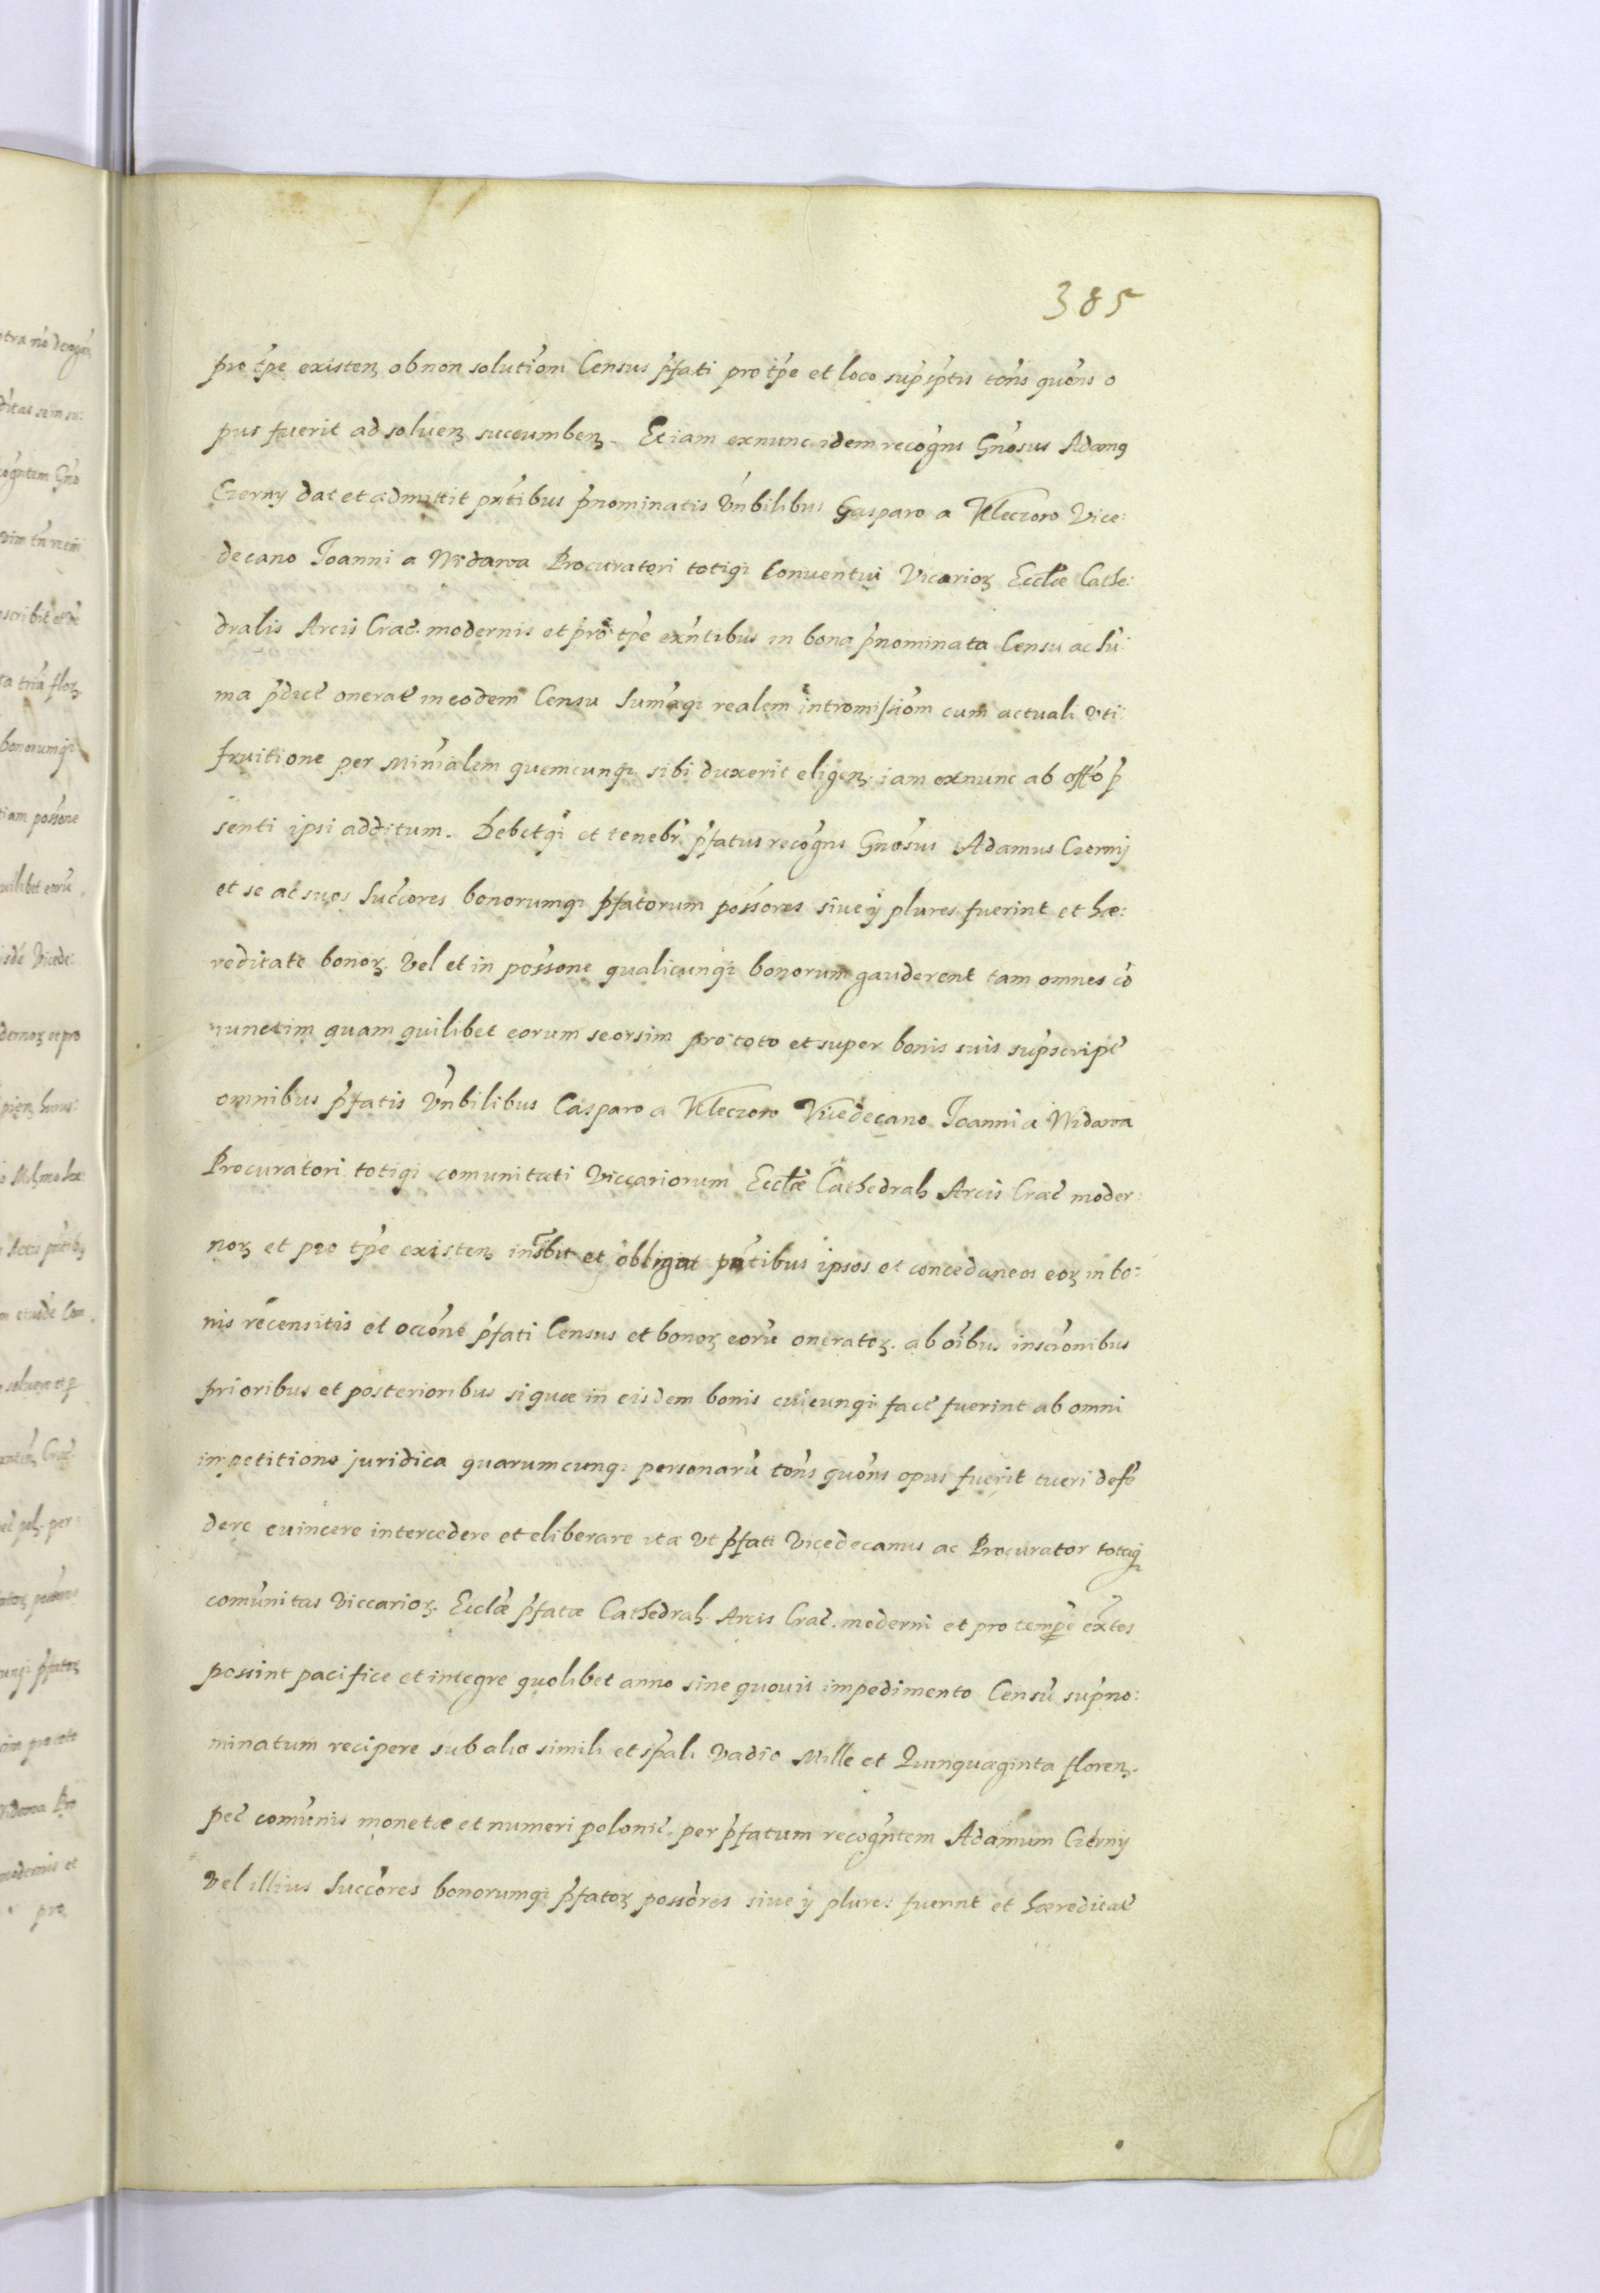 385
pro tpe existen ob non solutiom Census pfati pro tpe et loco supscriptis tons quons o
pus fuerit ad soluen succumben. Et iam ex nunc idem recogns Gnosus Adamus
Czerny dat et admittit pntibus pnominatis Vnbilibus Gasparo a Kleczoro Vice:
decano Joanni a Widawa Procuratori totiqȝ Conuentui Vicarioȝ Eccłæ Cathe:
dralis Arcis Crac. modernis et pro tpe exntibus in bona pnominata Censu ac su
ma pdict onerat in eodem Censu Sumaqȝ realem intromissiom cum actuali vti
fruitione per Minialem quemcunqȝ sibi duxerit eligen. iam ex nunc ab offo p
senti ipsi additum. Debetqȝ et tenebr pfatus recogns Gnosus Adamus Czerny
et se ac suos Succores bonorumqȝ pfatorum possores siue ÿ plures fuerint et hæ:
reditate bonoȝ. Vel et in possone qualicunqȝ bonorum gauderent tam omnes co
niunctim quam quilibet eorum seorsim pro toto et super bonis suis supscript
omnibus pfatis Vnbilibus Casparo a Kleczoro Vicedecano Joanni a Widawa
Procuratori totiqȝ comunitati Viccariorum Eccłæ Cathedral Arcis Crac moder:
noȝ et pro tpe existen inscbit et obligat pntibus ipsos et concedaneos eoȝ in bo:
nis recensitis et occone pfati Census et bonoȝ eoru oneratoȝ. ab oibus inscronibus
prioribus et posterioribus si quæ in eisdem bonis cuicunqȝ fact fuerint ab omni
impetitione juridica quarumcunqȝ personaru tons quons opus fuerit tueri defe
dere euincere intercedere et eliberare ita Vt pfati Vicedecanus ac Procurator totaqȝ
comunitas Viccarioȝ. Eccłæ pfatæ Cathedral. Arcis Crac. moderni et pro tempe extes
possint pacifice et integre quolibet anno sine quouis impedimento Censu supno:
minatum recipere sub alio simili et spali Vadio Mille et Quinquaginta floren.
pec comunis monetæ et numeri polonic. per pfatum recogntem Adamum Czerny
Vel illius Succores bonorumqȝ pfatoȝ possores siue ÿ plures fuerint et hæreditat